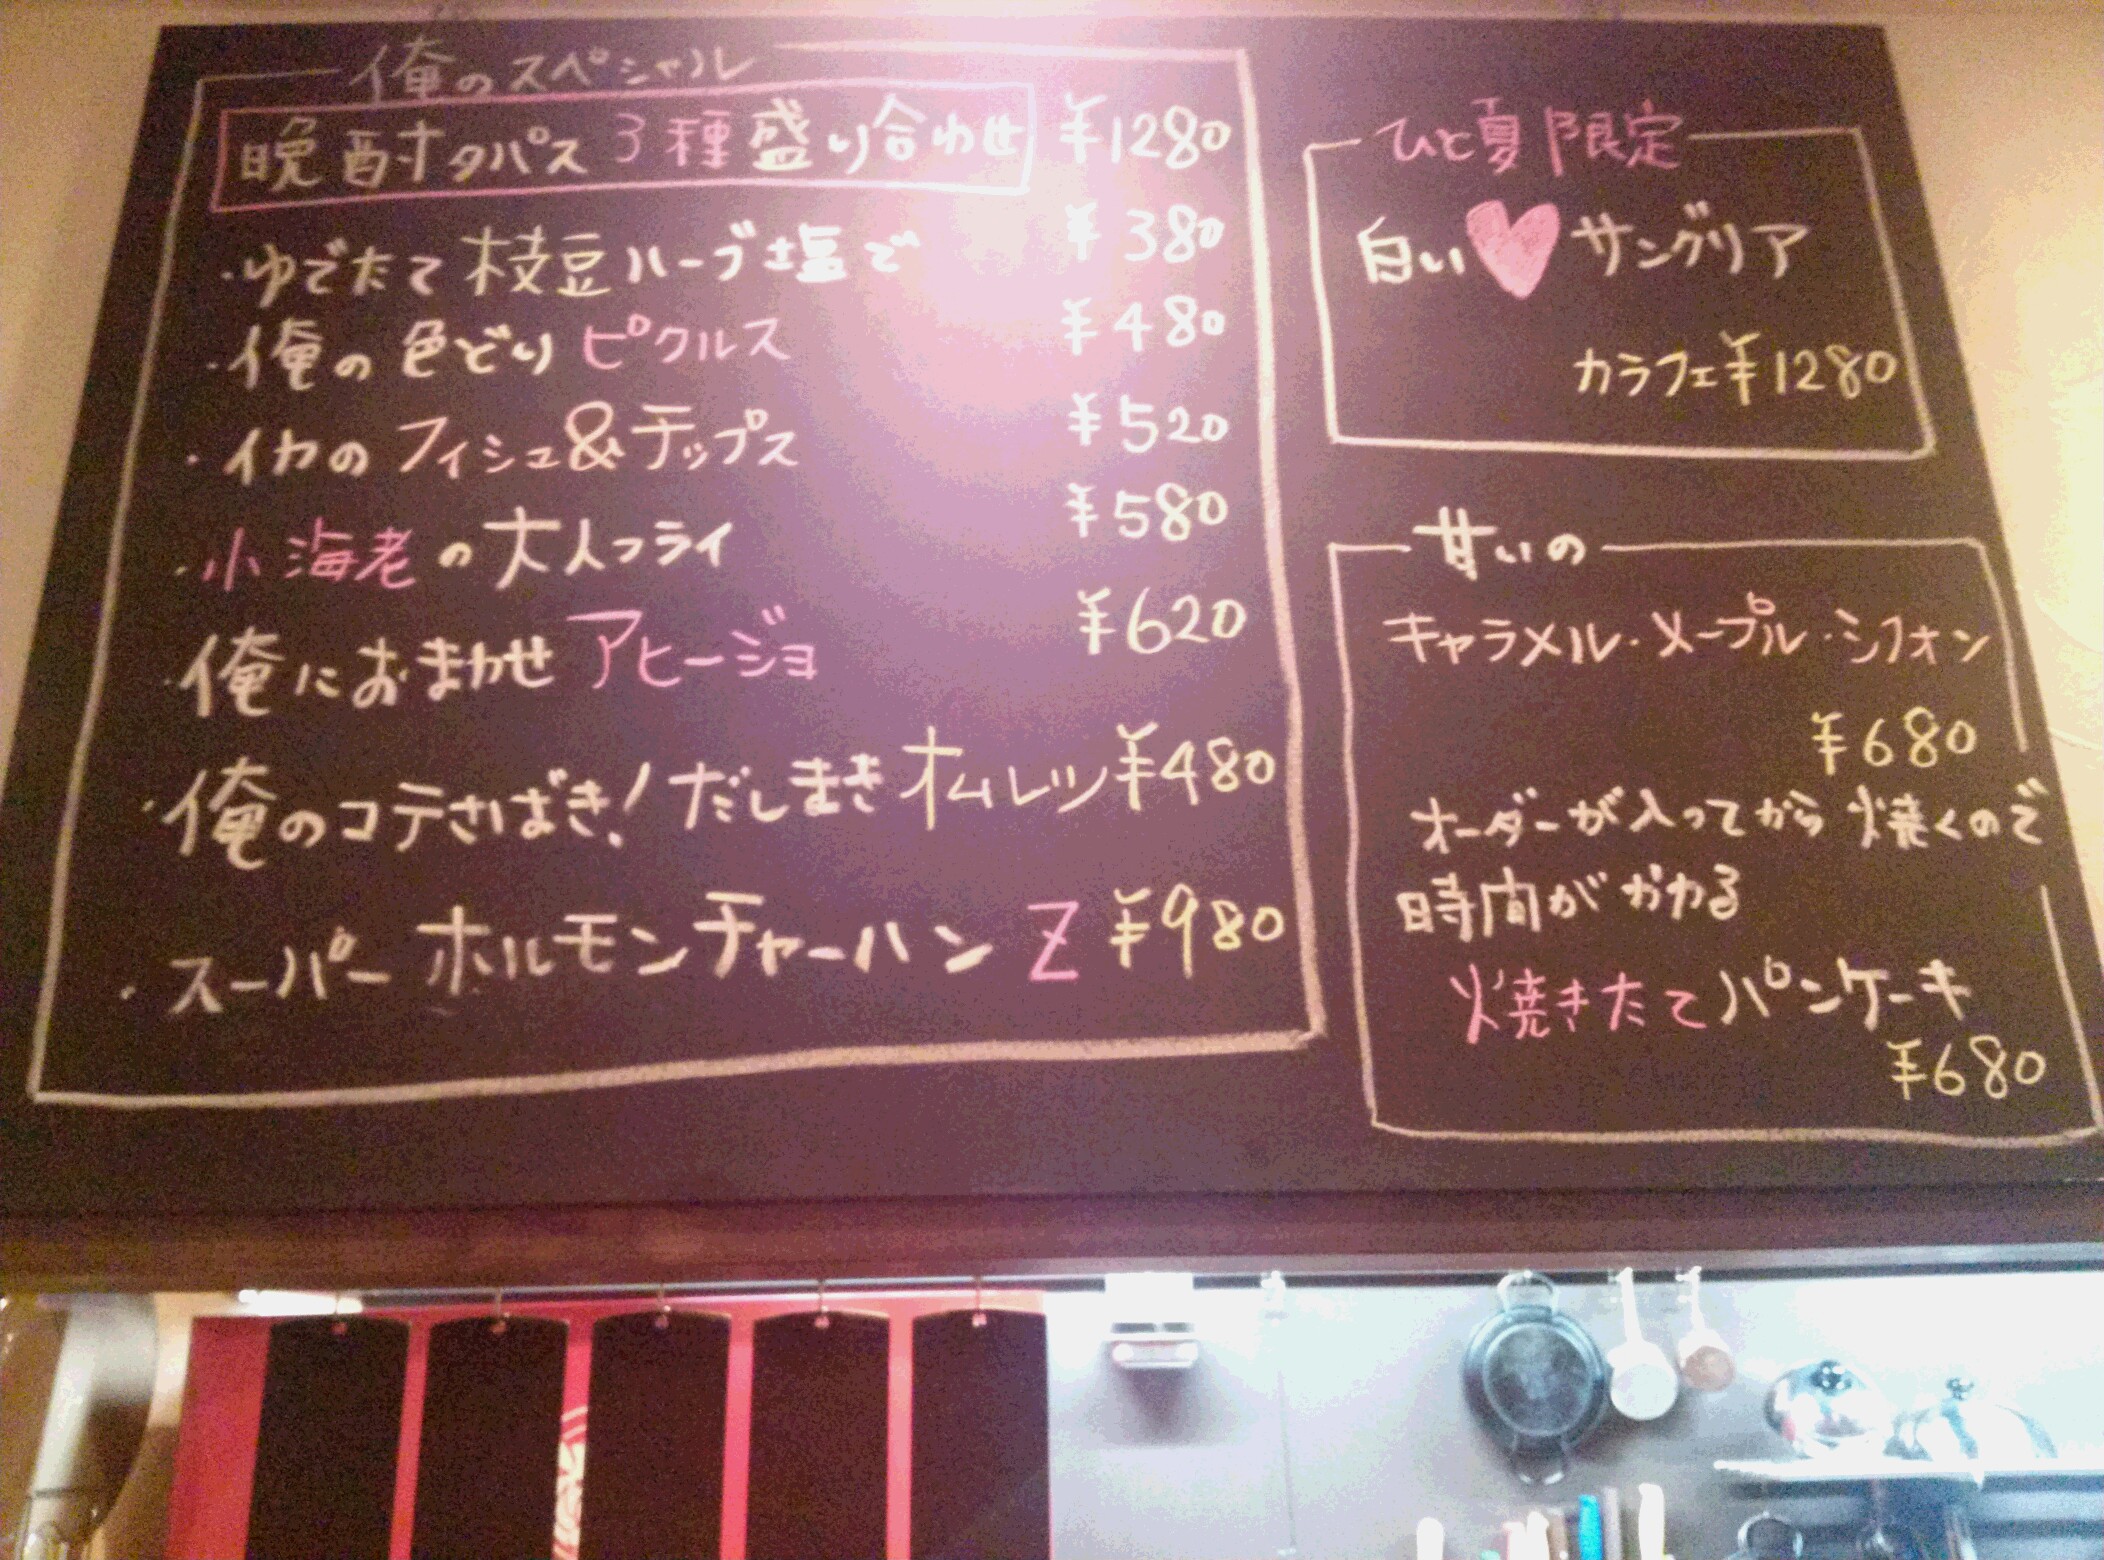 俺のスペシャル
晩酌タパス3種盛り合わせ ¥1280
・ゆでたて枝豆ハーブ塩で ¥380
・俺の色どりピクルス ¥480
・イカのフィシュ&チップス ¥520
・小海老の大人フライ ¥580
・俺におまかせアヒージョ ¥620
・俺のコテさばき!だしまきオムレツ ¥480
・スーパーホルモンチャーハンZ ¥980
ひと夏限定
白い♥サングリア
カラフェ¥1280
甘いの
キャラメル・メープル・シフォン
¥680
オーダーが入ってから焼くので
時間がかかる
焼きたてパンケーキ
¥680